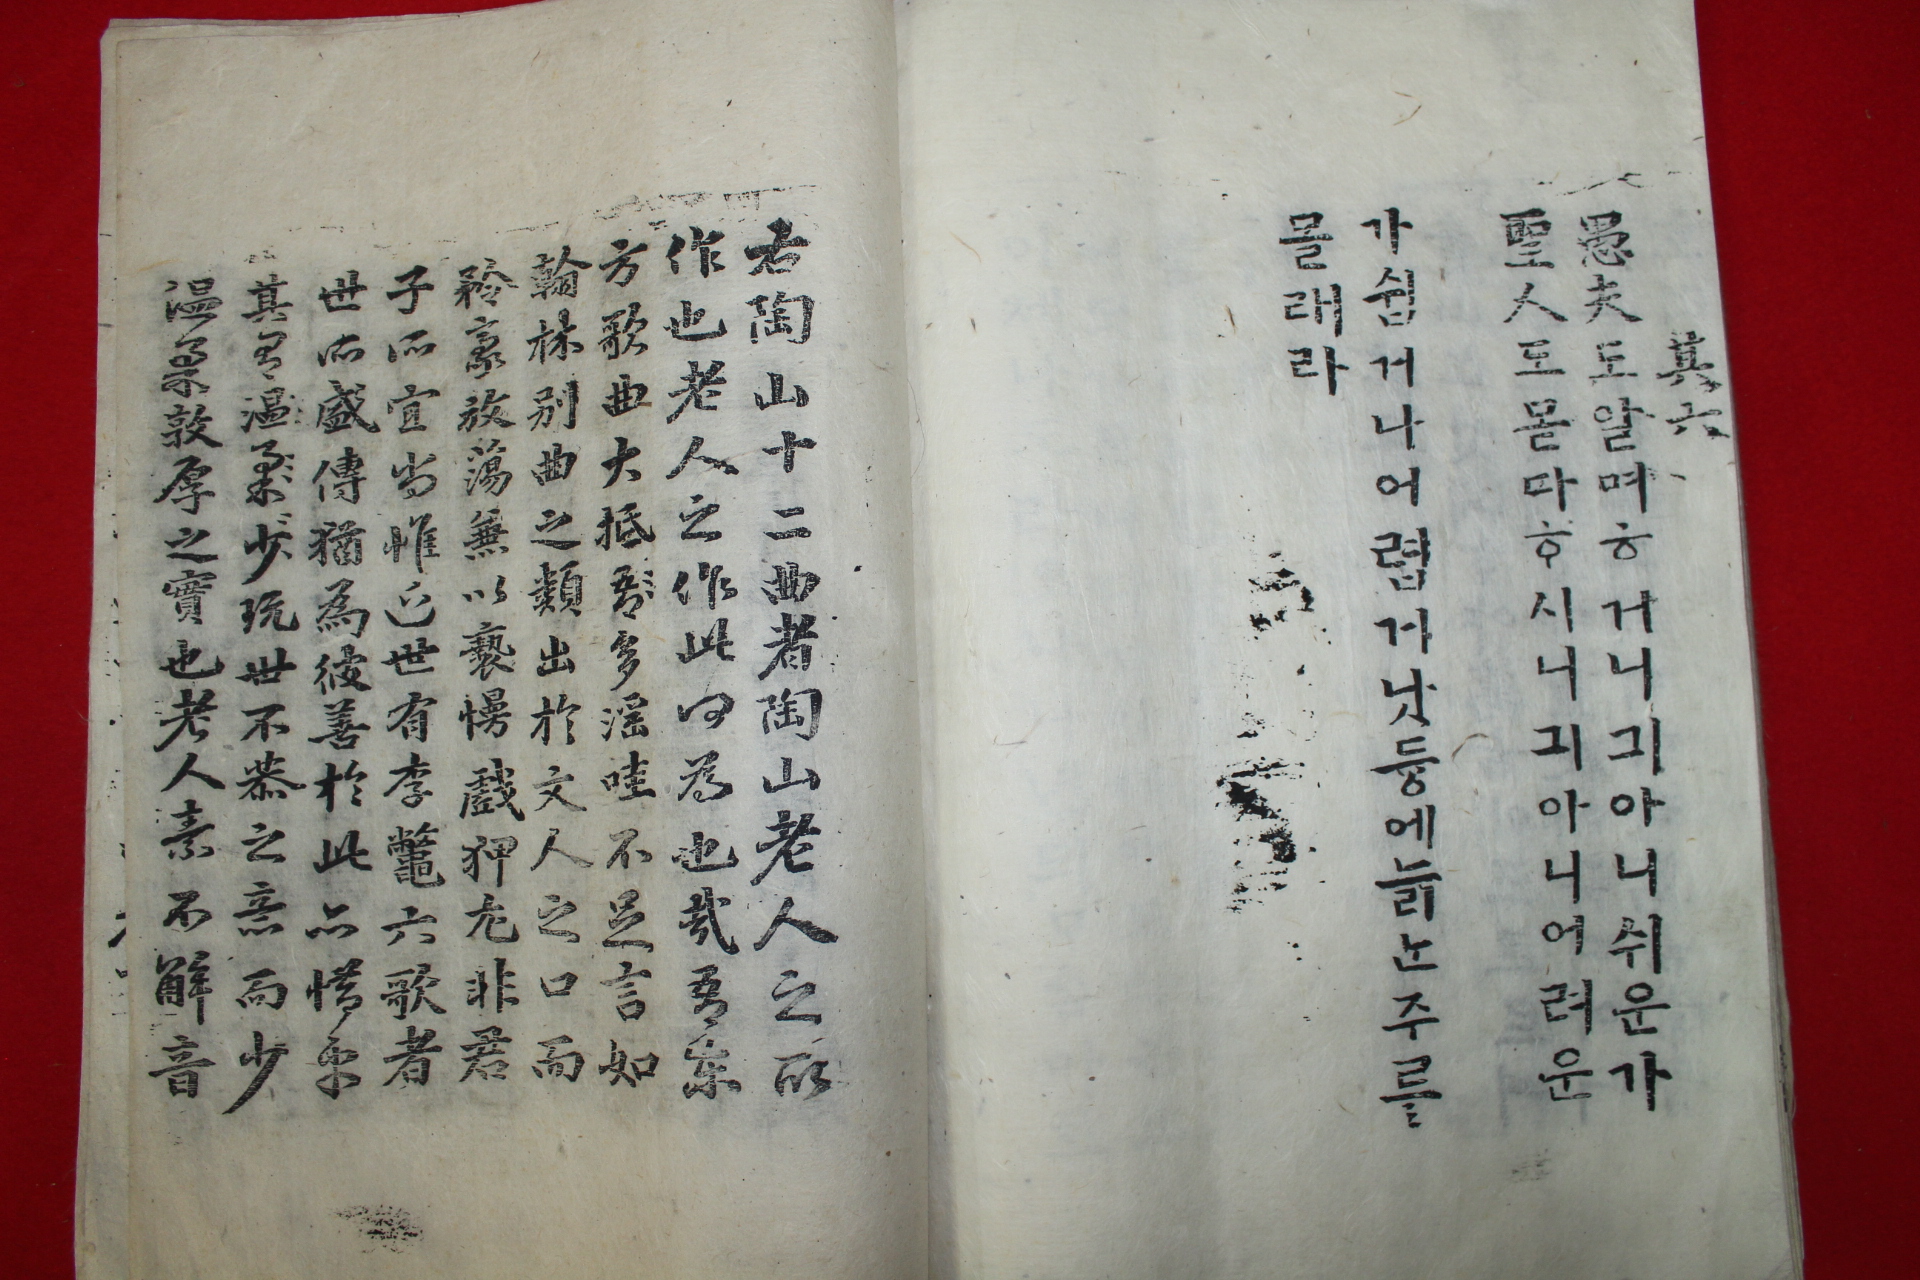 其六
愚夫도알며ᄒᆞ거니긔아니쉬운가
聖人도몯다ᄒᆞ시니긔아니어려운
가쉽거나어렵거낫듕에늙ᄂᆞᆫ주를
몰래라
右陶山十二曲者陶山老人之所
作也老人之作此何爲也哉吾東
方歌曲大抵多淫哇不足言如
翰林別曲之類出於文人之口而
矜豪放蕩兼以褻慢戲狎尤非君
子所宜尙惟近世有李鼈六歌者
世所盛傳猶爲彼善於此亦惜乎
其有玩世不恭之意而少
溫柔敦厚之實也老人素不解音